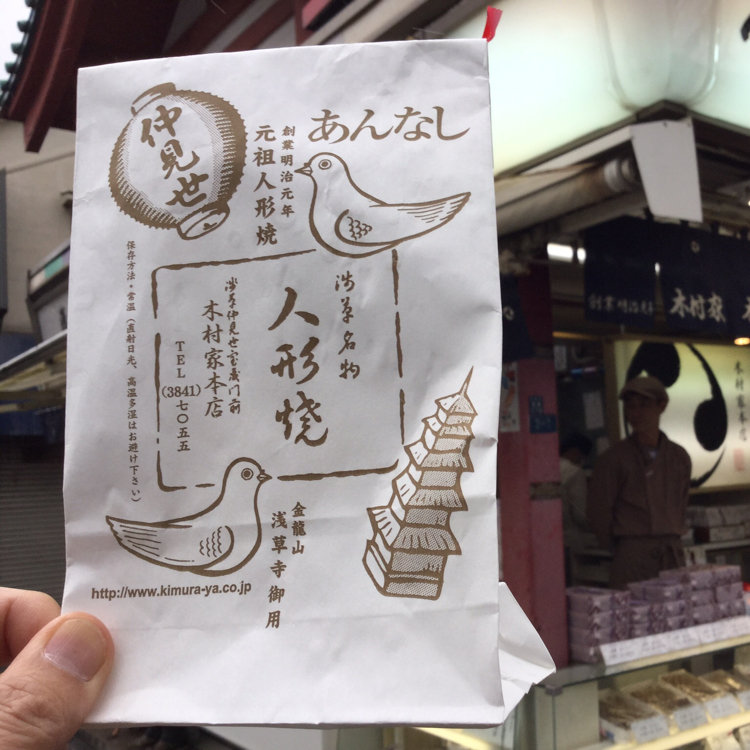 あんなし
創業明治元年
元祖人形焼
仲見世
浅草名物
人形焼
浅草仲見世宝蔵門前
木村家本店
TEL(3841)七〇五五
保存方法・常温(直射日光、高温多湿はお避け下さい)
金龍山
浅草寺御用
http://www.kimura-ya.co.jp
創業明治元年
木村家
木村家本店